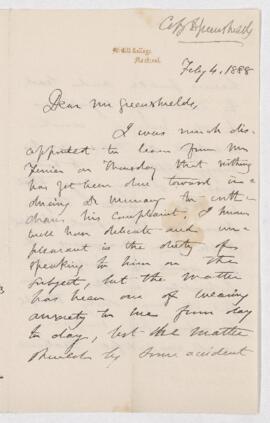 Copy Greenshields
McGill College
Montreal
Feby 4, 1888
Dear Mr Greenshields,
I was much dis-
appointed to learn from Mr
Ferrier on Thursday that nothing
has yet been done toward in-
ducing Dr Murray to with-
draw his complaint. I know
well how delicate and un-
pleasant is the duty of
speaking to him on the
subject, but the matter
has been one of wearing
anxiety to me from day
to day, lest the matter
should by some accident